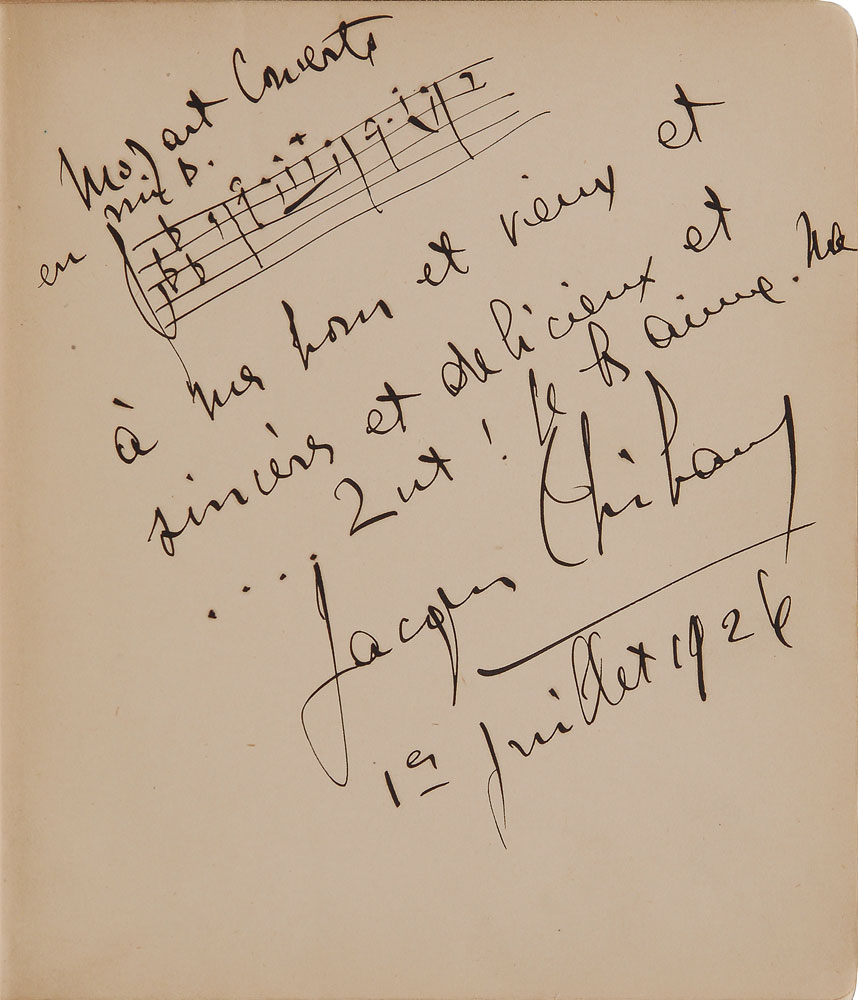 Mozart Concerto
en mi b.
à mon bon et vieux et
sincère et délicieux et
... Zut! Je l'aime. Na
Jacques Thibaud
1er Juillet 1926